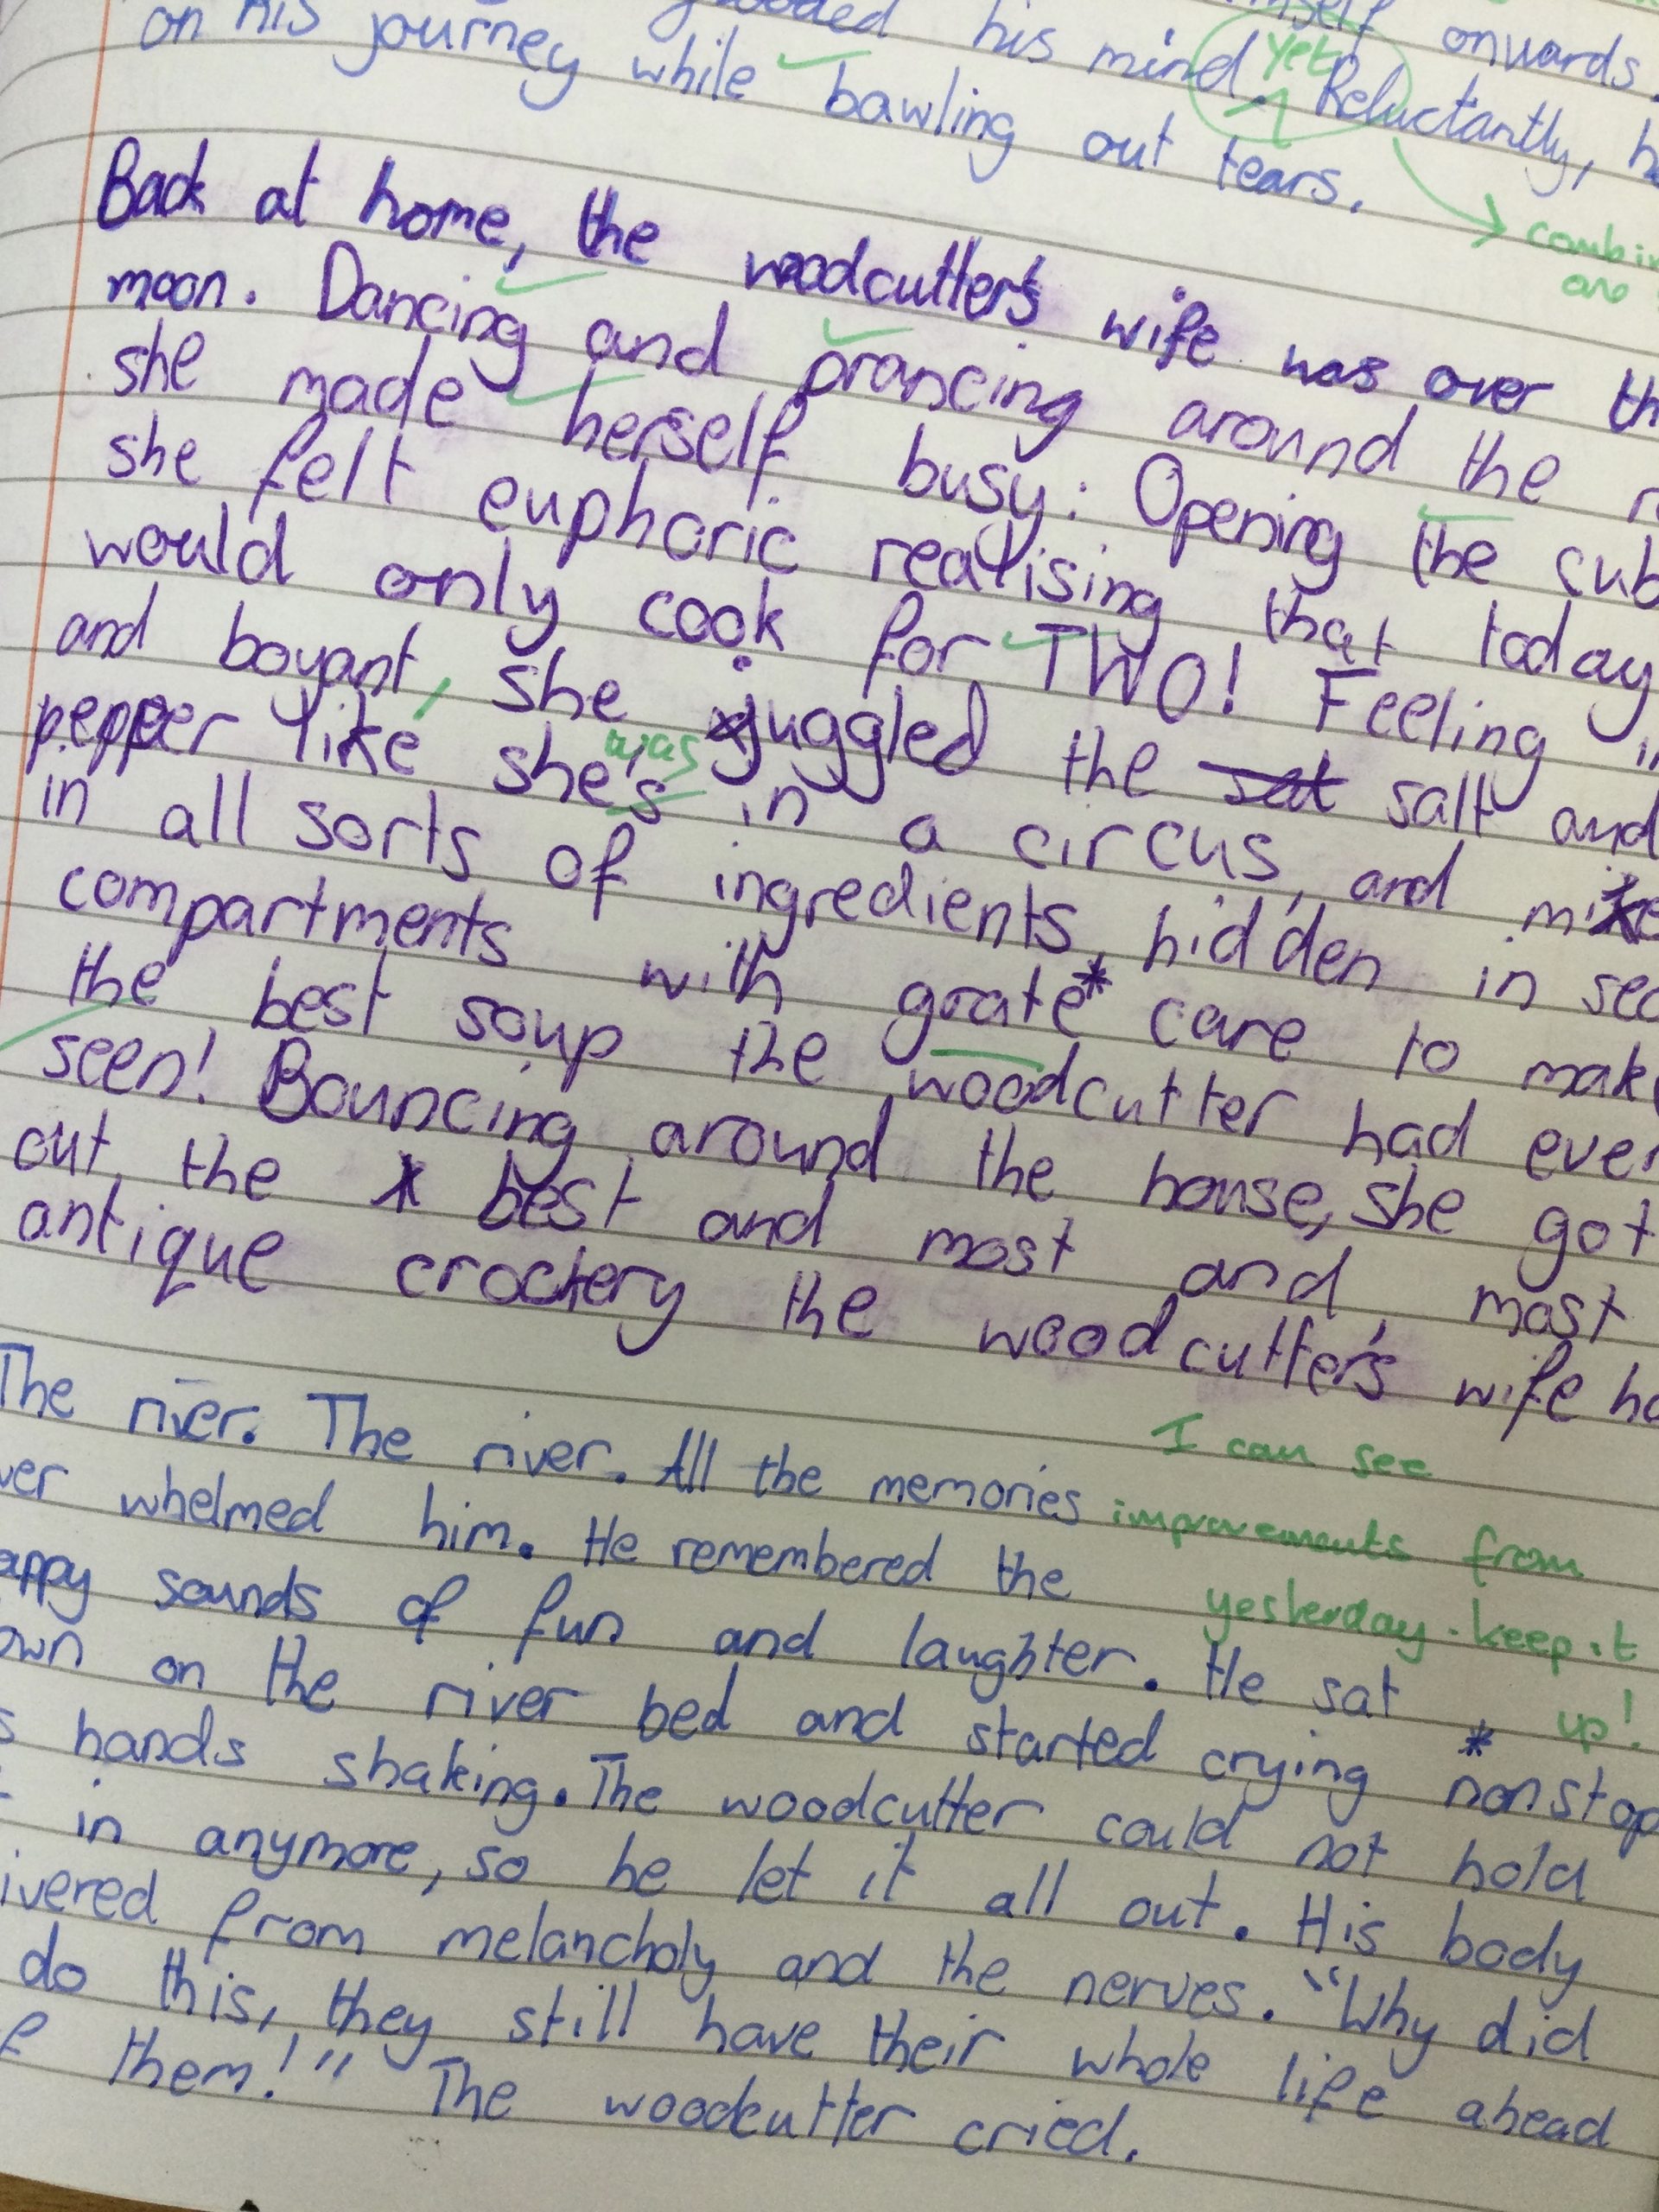 himself onwards.
on his journey while bawling out tears.
his mind. yet Reluctantly,
Back at home, the woodcutter's wife was over
moon. Dancing and prancing around the
she made herself busy. Opening the
she felt euphoric realising that today
would only cook for TWO! Feeling
and boyant, she juggled the salt and
pepper like she's was in a circus, and
in all sorts of ingredients, hidden in
compartments with grate* care to
the best soup the woodcutter had ever
seen! Bouncing around the house, she got
out the best and most and most
antique crockery the woodcutter's wife
The river. The river. All the memories
whelmed him. He remembered the
sounds of fun and laughter. He sat
on the river bed and started crying *nonstop
hands shaking. The woodcutter could not hold
in anymore, so he let it all out. His body
from melancholy and the nerves. "Why did
do this, they still have their whole life ahead
them!" The woodcutter cried.
I can see
improvements from
yesterday. keep it
up!